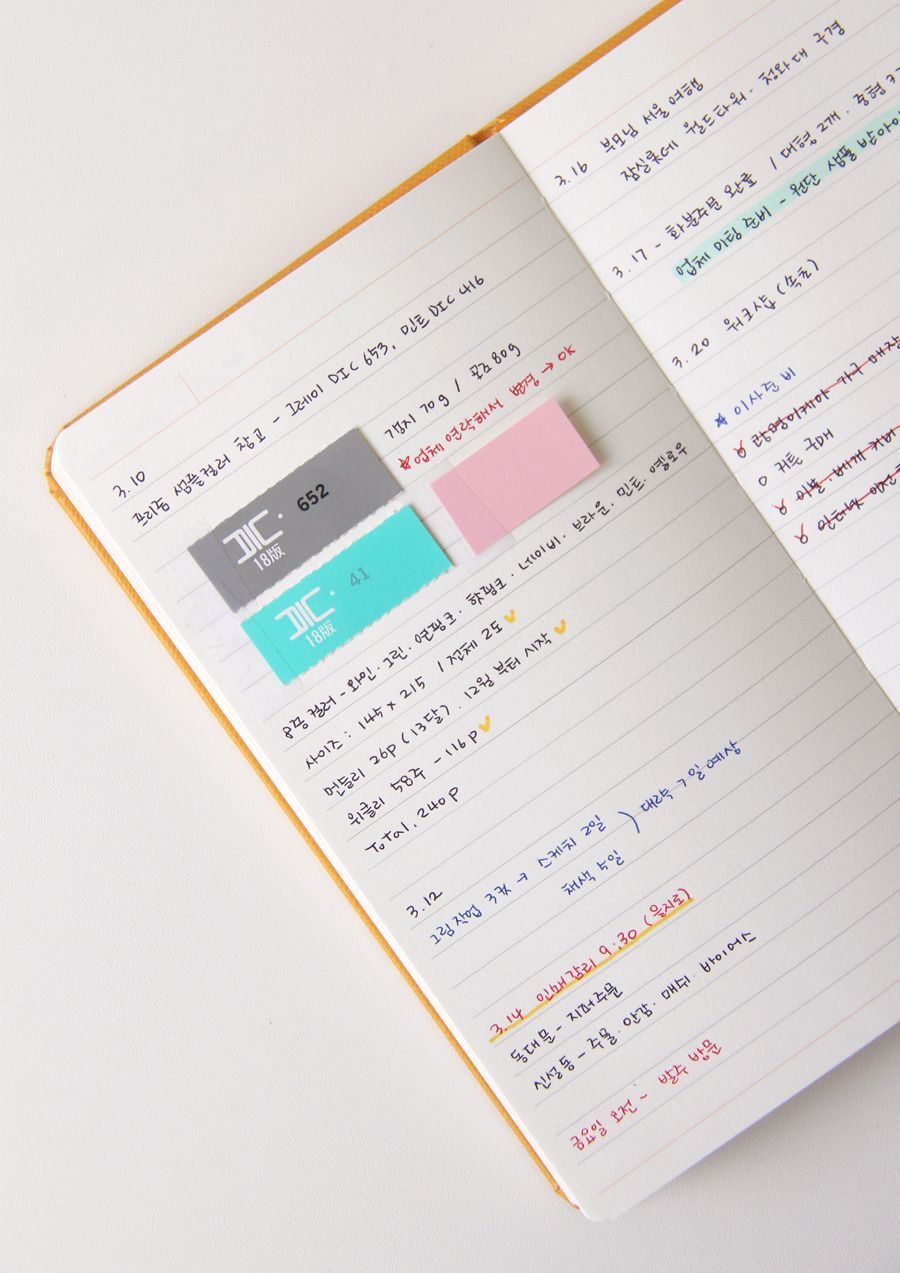 3.10
프리즘 샘플컬러 참고 - 그레이 DIC 653, 민트 DIC 416
겉지 70g / 포고 80g
업체 연락해서 변경 → OK
DIC. 652
18版
DIC. 41
18版
8종 컬러 - 와인 · 그린 · 연핑크 · 핫핑크 · 네이비 · 브라운 · 민트 · 옐로우
사이즈 : 145 x 215 / 전체 2도
먼슬리 26p (13달) . 12월 부터 시작
위클리 58주 - 116 p
Total. 240 p
3.12
그림작업 3컷 → 스케치 2일 ) 대략 7일 예상
채색 5일
3.14 인쇄감리 9:30 (을지로)
동대문 - 지퍼주문
신설동 - 주물 · 안감 · 매쉬 · 바이어스
금요일 오전 - 발주 방문
3.16 부모님 서울여행
잠실롯데 월드타워 · 청와대 구경
3.17 - 화분주문 완료 / 대형 2개 · 중형
업체 미팅 준비 - 원단 샘플 받아
3.20 워크샵 (속초)
이사준비
광명이케아 가구
o 커튼 구매
이불 · 베개 커버